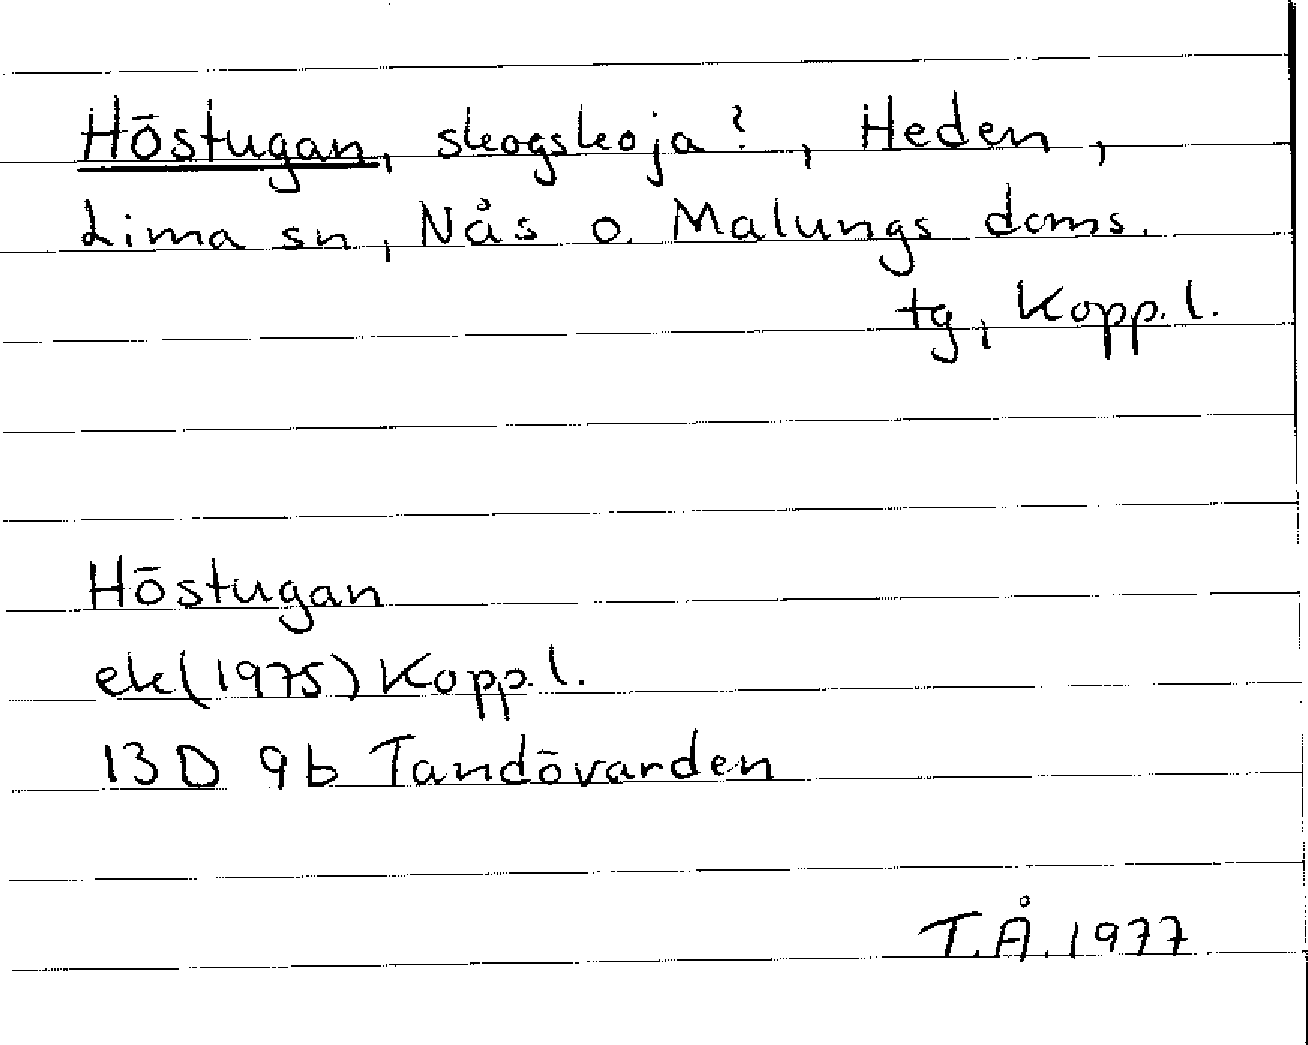 Höstugan, skogskoja?, Heden,
Lima sn, Nås o. Malungs doms.
tg, Kopp. l.
Höstugan
ek (1975) Kopp. l.
13 D 9b Tandövarden
T.Å. 1977